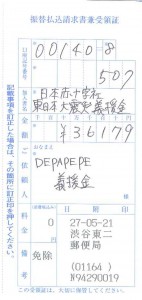 振替払込請求書兼受領証
口座記号番号
00140-8
507
加入者名
日本赤十字社
東日本大震災義援金
金額
¥36179
ご依頼人
おなまえ
DEPAPEPE
義援金
様
料金
0
円
備考
免除
日附印
27-05-21
渋谷東二
郵便局
(01164)
N94290019
記載事項を訂正した場合は、その箇所に訂正印を押してください。
この受領証は、大切に保管してください。